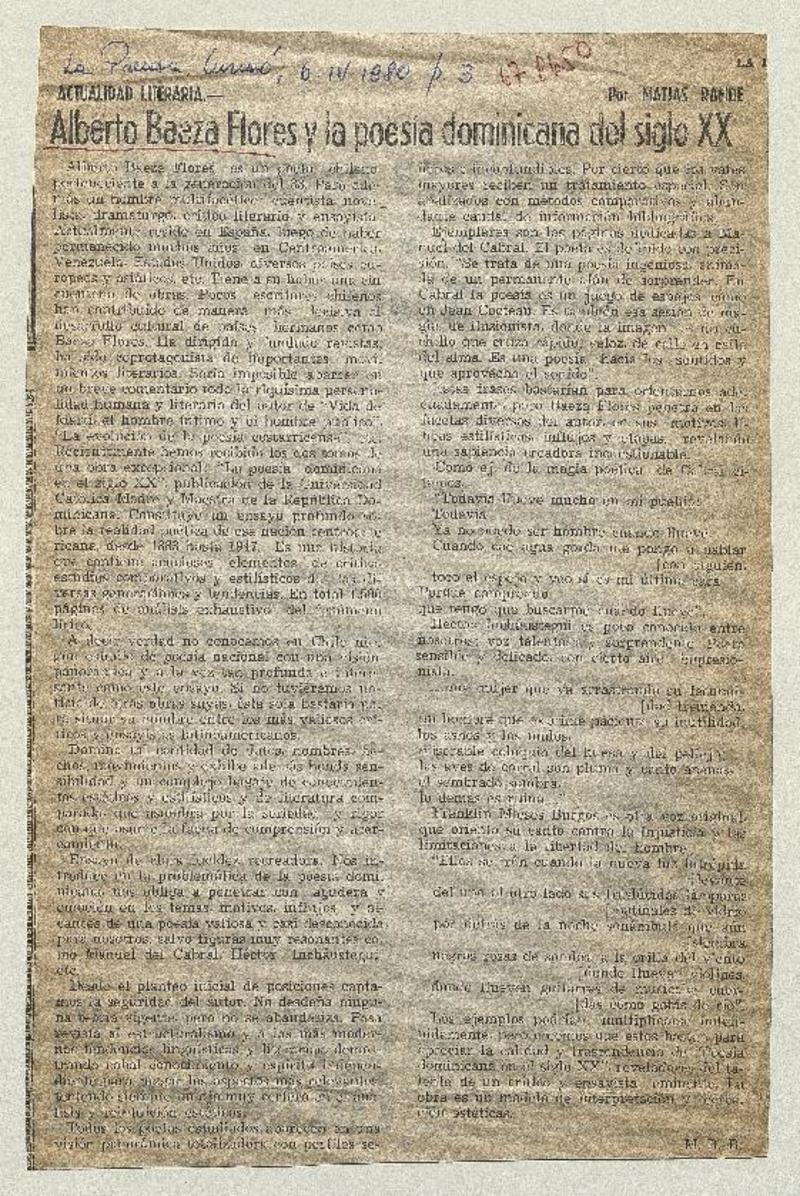 La Prensa, Curicó, 6 IV 1980 p. 3
LA
ACTUALIDAD LITERARIA.—
Por MATIAS RAFIDE
Alberto Baeza Flores y la poesía dominicana del siglo XX
Alberto Baeza Flores es un poeta chileno
perteneciente a la generación del 38. Pero ade-
más un hombre multifacético: cuentista, nove-
lista, dramaturgo, crítico literario y ensayista.
Actualmente reside en España, luego de haber
permanecido muchos años en Centroamérica,
Venezuela, Estados Unidos, diversos países eu-
ropeos y asiáticos, etc. Tiene a su haber una
de obras. Pocos escritores chilenos
han contribuido de manera más decisiva al
desarrollo cultural de países hermanos como
Baeza Flores. Ha dirigido y fundado revistas,
ha sido coprotagonista de importantes movi-
mientos literarios. Sería imposible abarcar en
un breve comentario toda la riquísima persona-
lidad humana y literaria del autor de "Vida de
el hombre íntimo y el hombre
"La evolución de la poesía costarricense",
Recientemente hemos recibido los dos tomos de
una obra excepcional: "La poesía dominicana
en el siglo XX", publicación de la Universidad
Católica Madre y Maestra de la República Do-
minicana. Constituye un ensayo profundo so-
bre la realidad poética de esa nación centroame-
ricana, desde 1883 hasta 1947. Es una historia
que contiene elementos de crítica,
estudios comparativos y estilísticos de las di-
versas generaciones y tendencias. En total
páginas de análisis exhaustivo del fenómeno
lírico.
A decir verdad no conocemos en Chile nin-
gún estudio de poesía nacional con una visión
panorámica y a la vez tan profunda e intere-
sante como este ensayo. Si no tuviéramos no-
ticia de otras obras suyas, ésta sola bastaría pa-
ra situar su nombre entre los más valiosos crí-
ticos y ensayistas latinoamericanos.
Domina tal cantidad de datos, nombres, fe-
chos, movimientos y exhibe además honda sen-
sibilidad y un complejo bagaje de conocimien-
tos estéticos y estilísticos y de literatura com-
parada que asombra por la seriedad y rigor
con que asume la faena de comprensión y acer-
camiento.
Ensayo de clara lucidez recreadora. Nos in-
troduce en la problemática de la poesía domi-
nicana, nos obliga a penetrar con agudeza y
emoción en los temas, motivos, influjos y al-
cances de una poesía valiosa y casi desconocida
para nosotros, salvo figuras muy resonantes co-
mo Manuel del Cabral, Héctor Incháustegui,
etc.
Desde el planteo inicial de posiciones capta-
mos la seguridad del autor. No desdeña ningu-
na teoría vigente pero no se abanderiza. Pasa
revista al estructuralismo y a las más moder-
nas tendencias lingüísticas y literarias demos-
trando cabal conocimiento y espíritu indepen-
diente para
Todos los poetas estudiados aparecen en una
visión panorámica totalizadora con perfiles se-
inconfundibles. Por cierto que los vates
mayores reciben un tratamiento especial. Son
analizados con métodos comparativos y abun-
dante caudal de información bibliográfica.
Ejemplares son las páginas dedicadas a Ma-
nuel del Cabral. El poeta es definido con preci-
sión. "Se trata de una poesía ingeniosa,
de un permanente afán de sorprender. En
Cabral la poesía es un juego de espejos como
en Jean Cocteau. Es también esa sesión de ma-
gia, de ilusionista, donde la imagen es un cu-
chillo que cruza rápido, veloz, de calle en calle
del alma. Es una poesía hacia los sentidos y
que aprovecha el sonido".
Estas frases bastarían para orientarnos ade-
cuadamente, pero Baeza Flores penetra en las
facetas diversos del autor, en sus motivos lí-
ricos, estilísticos, influjos y etapas, revelando
una sapiencia creadora incuestionable.
Como ej. de la magia poética de Cabral ci-
tamos:
"Todavía llueve mucho en mi pueblo.
Todavía
Ya no puedo ser hombre cuando llueve.
Cuando cae agua gorda me pongo a hablar
[con alguien,
toco el espejo y veo si es mi última cara.
Porque comprendo
que tengo que buscarme cuando llueve".
Héctor Incháustegui es poco conocido entre
nosotros: voz talentosa y sorprendente. Poeta
sensible y delicado, con cierto aire impresio-
nista.
mujer que va arrastrando su
[dad tremenda,
un hombre que exprime paciente su inutilidad,
los asnos y los mulos,
miserable coloquio del hueso y del pellejo;
las aves de corral son pluma y canto apenas,
el sembrado sombra,
lo demás es ruina..."
Franklin Mieses Burgos es otra voz original,
que orienta su canto contra la injusticia y las
limitaciones a la libertad del hombre:
"Ellos se irán cuando la nueva luz intrépida
[levante
del uno al otro lado sus translúcidas lámparas
[matinales de vidrio
por detrás de la noche sonámbula que aún
[siembra
negras rosas de sombra a la orilla del viento
[donde llueven violines,
donde llueven guitarras de
[das como gotas de
Los ejemplos podrían multiplicarse indefi-
nidamente, pero creemos que estos bastan para
apreciar la calidad y trascendencia de "Poesía
dominicana en el siglo XX", reveladora del ta-
lento de un crítico y ensayista eminente. La
obra es un modelo de interpretación y
ción estéticas.
M. R. R.